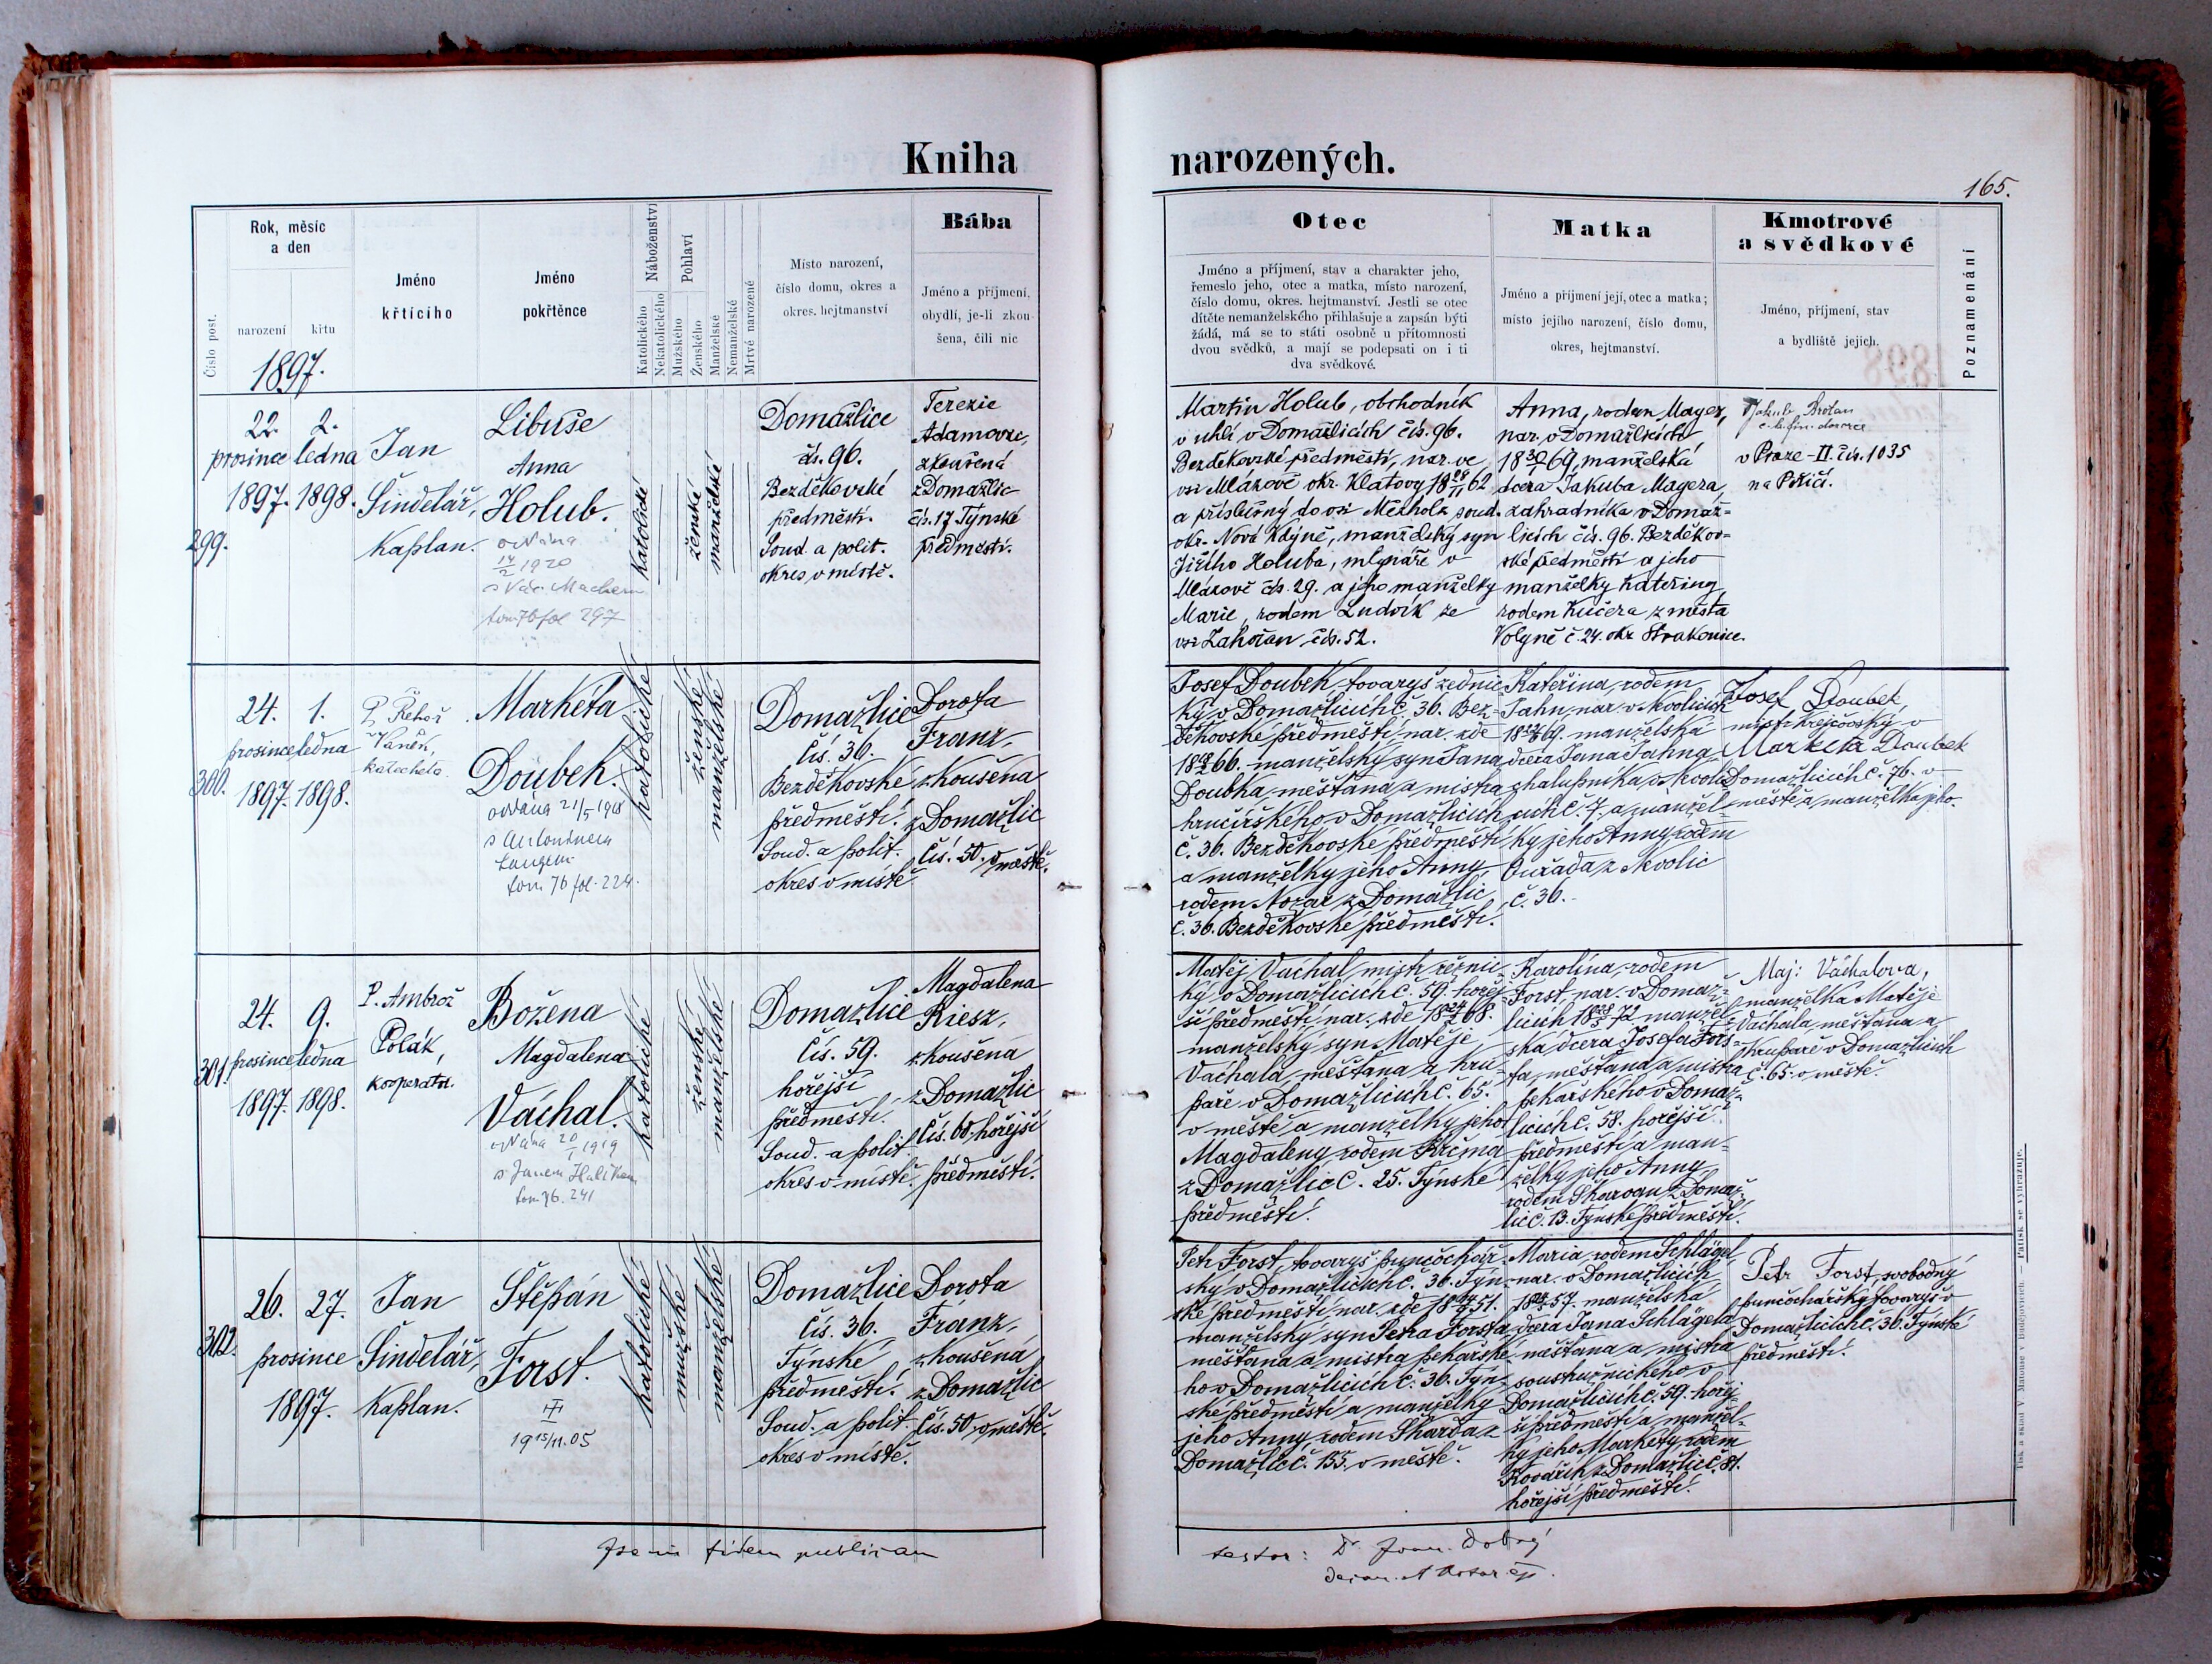 Kniha
narozených.
165.
Číslo post.
Rok, měsíc
a den
narození
křtu
1897.
Jméno
křtícího
Jméno
pokřtěnce
Náboženství
Katolického
Nekatolického
Pohlaví
Mužského
Ženského
Manželské
Nemanželské
Mrtvé narozené
Místo narození,
číslo domu, okres a
okres. hejtmanství
Bába
Jméno a příjmení,
obydlí, je-li zkou-
šena, čili nic
Otec
Jméno a příjmení, stav a charakter jeho,
řemeslo jeho, otec a matka, místo narození,
číslo domu, okres. hejtmanství. Jestli se otec
dítěte nemanželského přihlašuje a zapsán býti
žádá, má se to státi osobně u přítomnosti
dvou svědků, a mají se podepsati on i ti
dva svědkové.
Matka
Jméno a příjmení její, otec a matka;
místo jejího narození, číslo domu,
okres, hejtmanství.
Kmotrové
a svědkové
Jméno, příjmení, stav
a bydliště jejich.
Poznamenání
299.
22.
prosince
1897.
2.
ledna
1898.
Jan
Šindelář,
kaplan.
Libuše
Anna
Holub.
oddána
14/2 1920
s Vác. Machem
tom 76 fol 297
katolické
ženské
manželské
Domažlice
čís. 96.
Bezděkovské
předměstí.
Soud. a polit.
okres v místě.
Terezie
Adamovic,
zkoušená
z Domažlic
čís. 17 Týnské
předměstí.
Martin Holub, obchodník
v uhlí v Domažlicích čís. 96.
Bezděkovské předměstí, nar. ve
vsi Mlázově okr. Klatovy 18 62
a příslušný do vsi Mezholz soud.
okr. Nová Kdyně, manželský syn
Jiřího Holuba, mlynáře v
Mlázově čís. 29. a jeho manželky
Marie, rodem Ludvík ze
vsi Zahořan čís. 52.
Anna, rodem Mayer,
nar. v Domažlicích
18 69, manželská
dcera Jakuba Magera,
zahradníka v Domaž-
licích čís. 96. Bezděkov-
ské předměstí a jeho
manželky Kateřiny,
rodem Kučera z města
Volyně č. 24. okr. Strakonice.
Jakub
v Praze - II. čís. 1035
na Poříčí.
300.
24.
prosince
1897.
1.
ledna
1898.
P. Řehoř
Vaněk,
katecheta.
Markéta
Doubek.
oddána 21/5 1918
s Antonínem
Langem
tom 76 fol. 224.
katolické
ženské
manželské
Domažlice
čís. 36.
Bezděkovské
předměstí.
Soud. a polit.
okres v místě
Dorota
Franz,
zkoušena
z Domažlic
čís. 50. v městě.
Josef Doubek, tovaryš zednic-
ký v Domažlicích č. 36. Bez-
děkovské předměstí, nar. zde
18 66. manželský syn Jana
Doubka, měšťana a mistra
hrnčířského v Domažlicích
č. 36. Bezděkovské předměstí
a manželky jeho Anny,
rodem Nožar z Domažlic
č. 36. Bezděkovské předměstí.
Kateřina, rodem
Jahn, nar. v
18 69. manželská
dcera Jana Jahna,
chalupníka v
č. 7. a manžel-
ky jeho Anny, rodem
Ouřada z
č. 36.
Josef Doubek
mistr krejčovský v
Markéta Doubek
Domažlicích č. 76. v
městě a manželka jeho.
301.
24.
prosince
1897.
9.
ledna
1898.
P. Ambrož
Polák,
kooperator.
Božena
Magdalena
Váchal.
oddána 20/ 1919
s Janem
tom 76. 241
katolické
ženské
manželské
Domažlice
čís. 59.
hořejší
předměstí.
Soud. a polit.
okres v místě.
Magdalena
Riesz,
zkoušena
z Domažlic
čís. 60. hořejší
předměstí.
Matěj Váchal, mistr řeznic-
ký v Domažlicích č. 59. hořej-
ší předměstí, nar. zde 18 68.
manželský syn Matěje
Váchala, měšťana a kru-
paře v Domažlicích č. 65.
v městě a manželky jeho
Magdaleny, rodem Krčma
z Domažlic č. 25. Týnské
předměstí.
Karolína, rodem
Forst, nar. v Domaž-
licích 18 72 manžel-
ská dcera Josefa Fors-
ta, měšťana a mistra
pekařského v Domaž-
licích č. 58. hořejší
předměstí a man-
želky jeho Anny
rodem Skarvan z Domaž-
lic č. 13. Týnské předměstí.
Maj: Váchalova,
manželka Matěje
Váchala, měšťana a
krupaře v Domažlicích
č. 65. v městě.
302.
26.
prosince
1897.
27.
Jan
Šindelář,
kaplan.
Štěpán
Forst.
19 15/11. 05
katolické
mužské
manželské
Domažlice
čís. 36.
Týnské
předměstí.
Soud. a polit.
okres v místě.
Dorota
Franz,
zkoušená
z Domažlic
čís. 50 v městě.
Petr Forst, tovaryš punčochář-
ský v Domažlicích č. 36. Týn-
ské předměstí, nar. zde 18 51.
manželský syn Petra Forsta,
měšťana a mistra pekařské-
ho v Domažlicích č. 36. Týn-
ské předměstí a manželky
jeho Anny, rodem Skarda z
Domažlic č. 155. v městě.
Maria, rodem Schlägel,
nar. v Domažlicích
18 57. manželská
dcera Jana Schlägela,
měšťana a mistra
soustružnického v
Domažlicích č. 59. hořej-
ší předměstí a manžel-
ky jeho Markéty, rodem
Kovařík z Domažlic č. 81.
hořejší předměstí.
Petr Forst, svobodný
punčochářský tovaryš v
Domažlicích č. 36. Týnské
předměstí.
Patisk se vyhrazuje.
Tisk a sklad V. Matouše v Budějovicích.
fidem publicam
testor: Dr. Joan. Dobrý